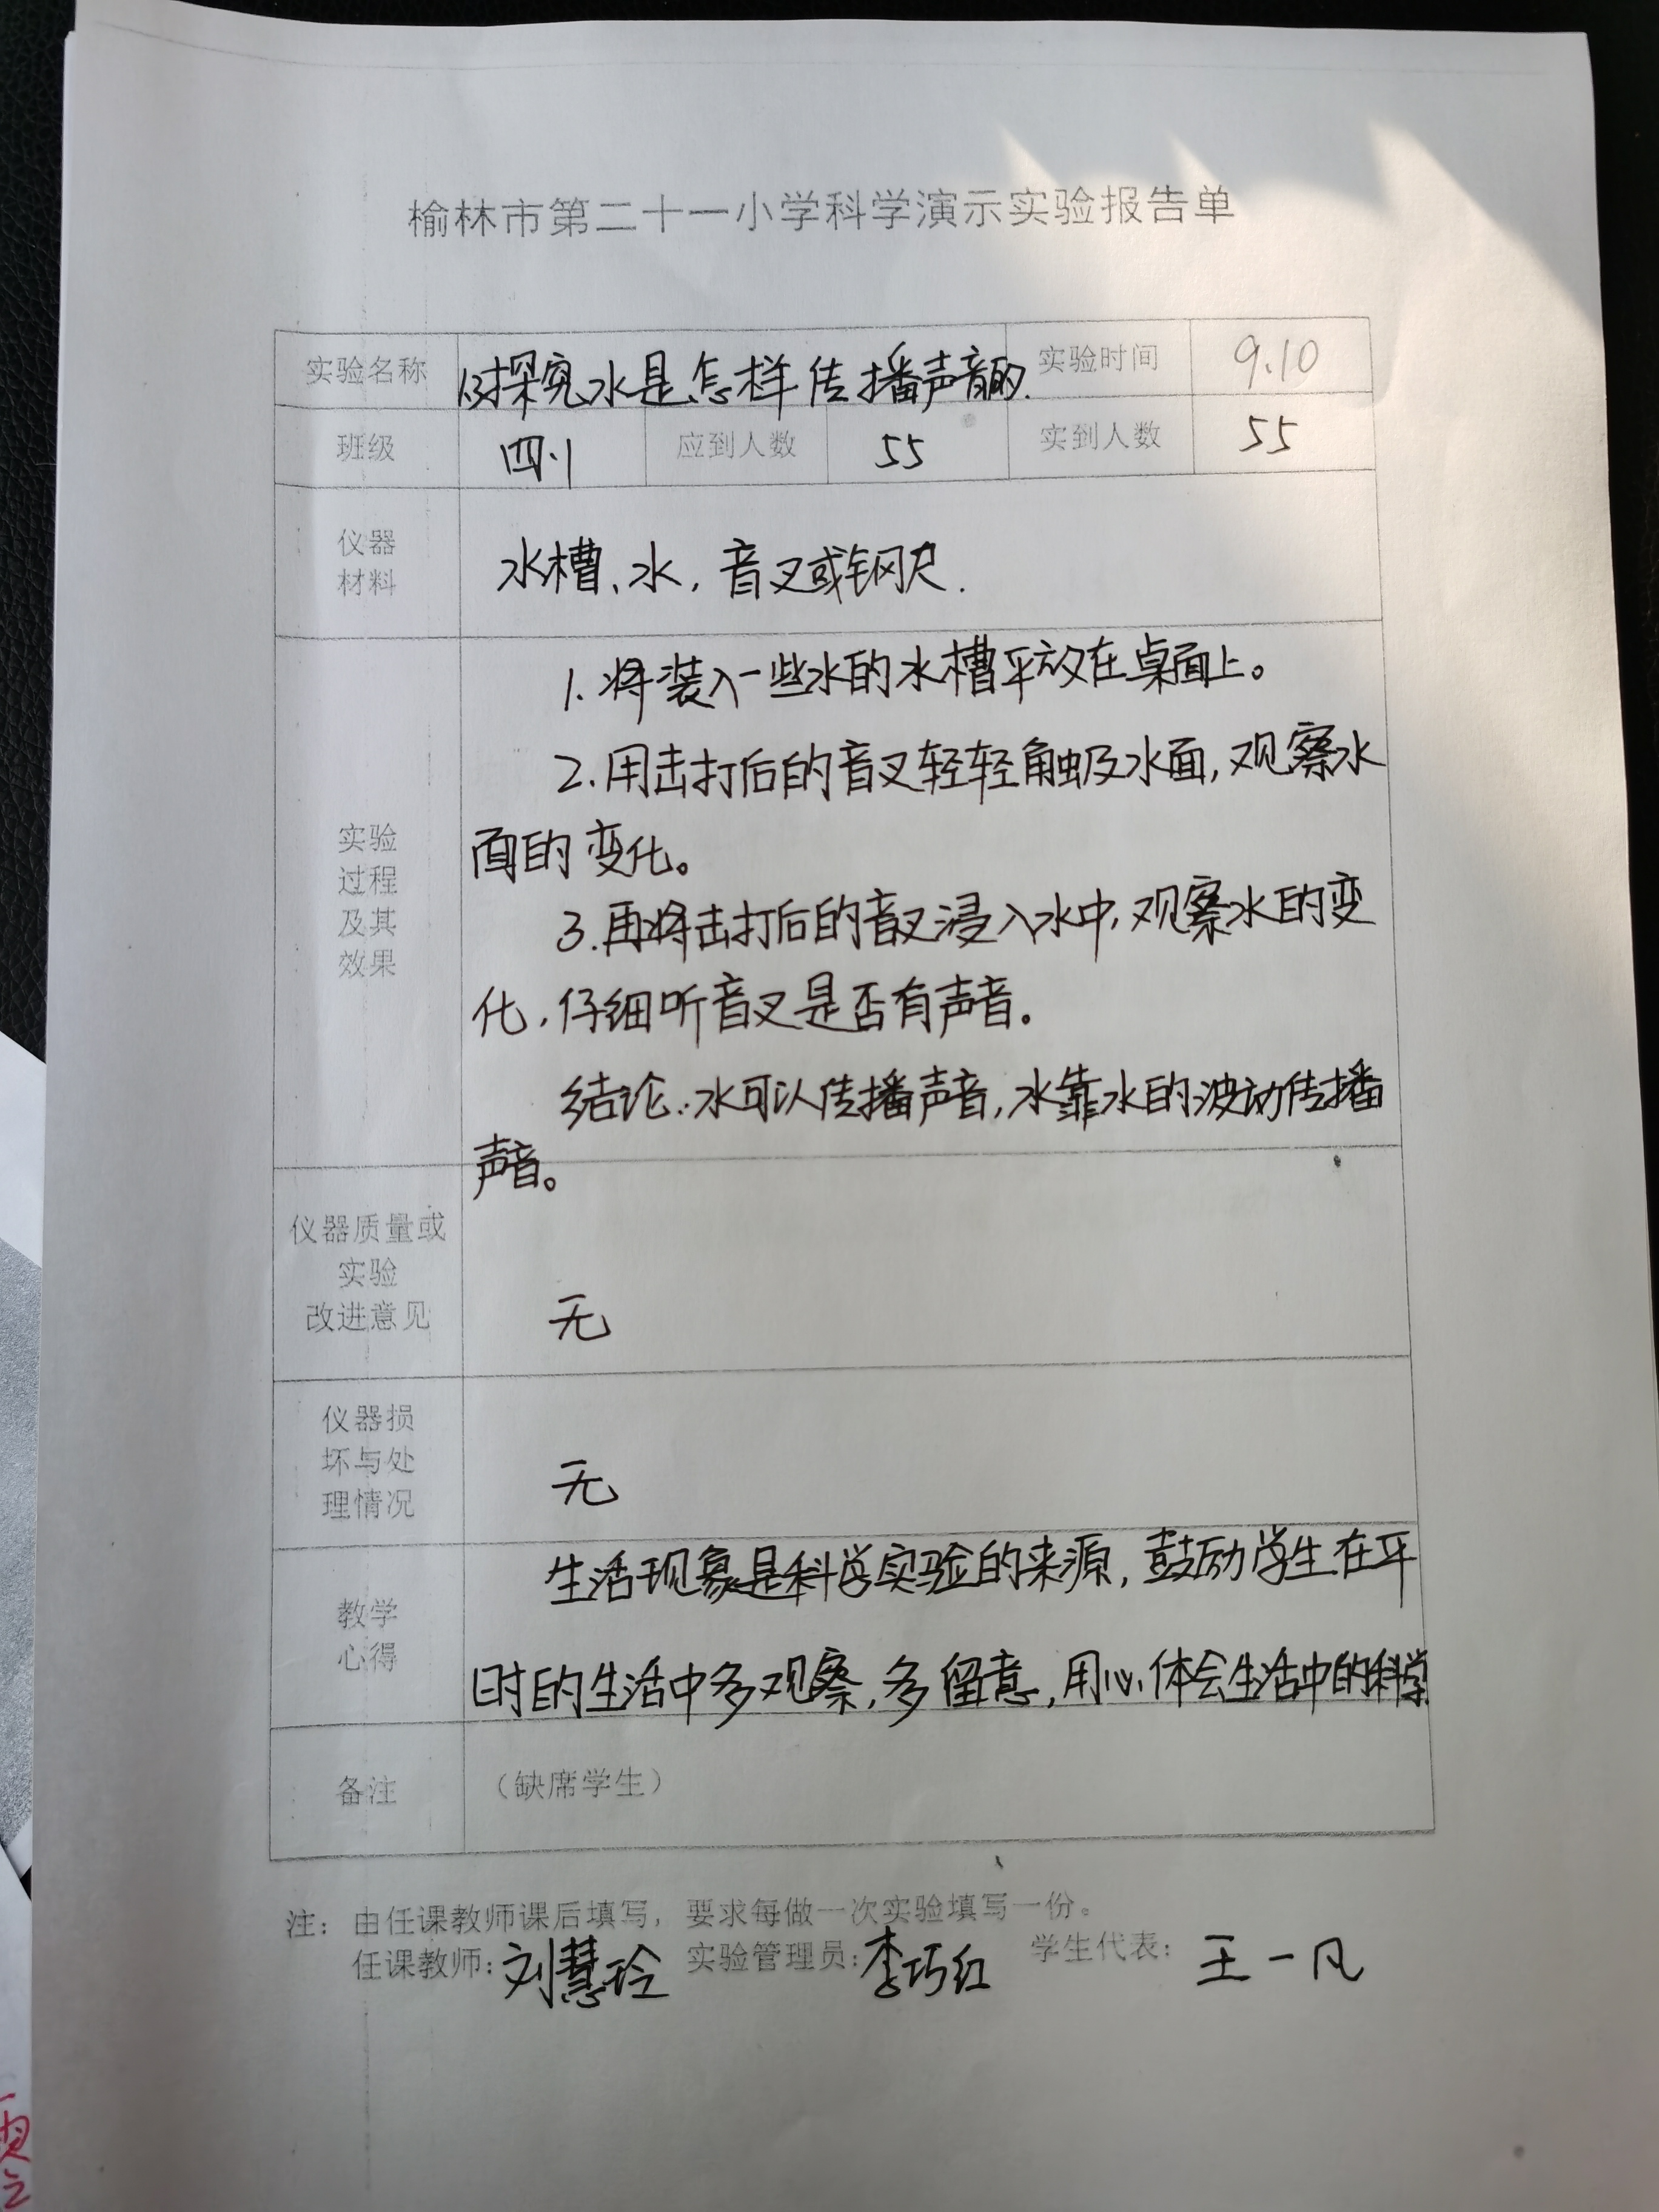 榆林市第二十一小学科学演示实验报告单
实验名称 探究水是怎样传播声音的. 实验时间 9.10
班级 四.1 应到人数 55 实到人数 55
仪器
材料
水槽、水，音叉或钢尺.
实验
过程
及其
效果
1.将装入一些水的水槽平放在桌面上。
2.用击打后的音叉轻轻触及水面，观察水
面的变化。
3.再将击打后的音叉浸入水中，观察水的变
化，仔细听音叉是否有声音。
结论：水可以传播声音，水靠水的波动传播
声音。
仪器质量或
实验
改进意见
无
仪器损
坏与处
理情况
无
教学
心得
生活现象是科学实验的来源，鼓励学生在平
时的生活中多观察，多留意，用心体会生活中的科学
备注 （缺席学生）
注：由任课教师课后填写，要求每做一次实验填写一份。
任课教师：刘慧玲 实验管理员：李巧红 学生代表：王一凡